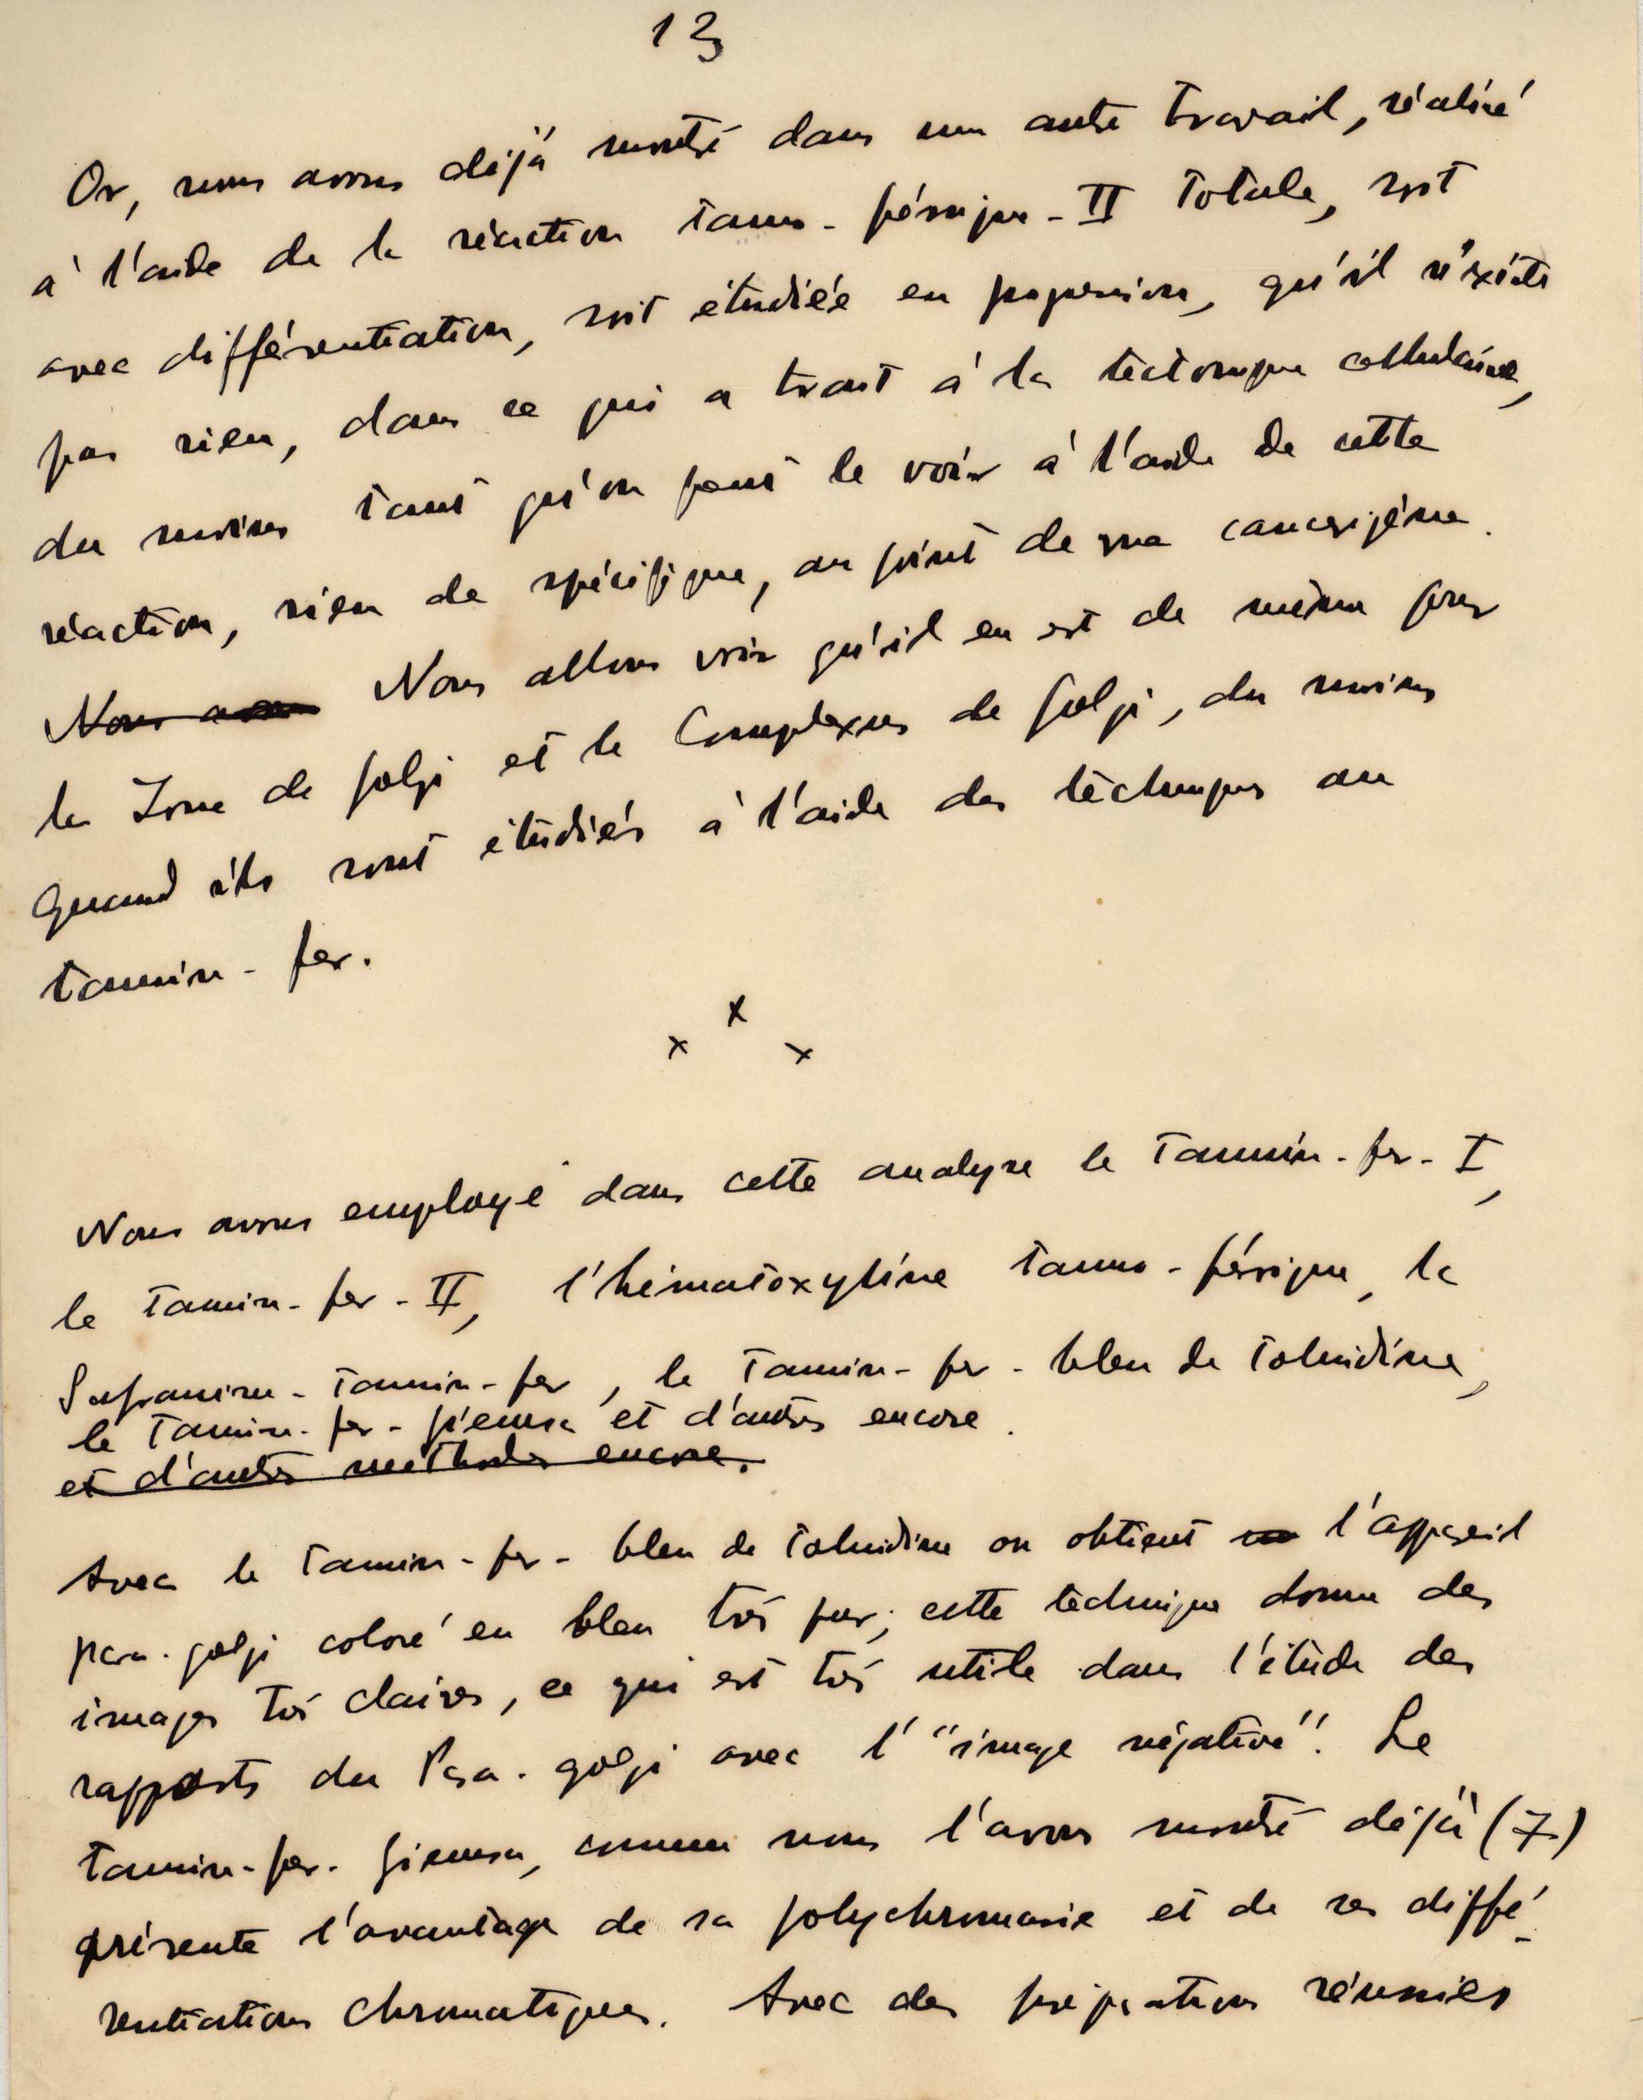 13
Or, nous avons déjà montré dans un autre travail, réalisé
à l'aide de la réaction tanno-férrique-II totale, soit
avec différentiation, soit étudiée en progression, qu'il n'existe
pas rien, dans ce qui a trait à la téctonique cellulaire,
du moins tant qu'on peut le voir à l'aide de cette
réaction, rien de spécifique, au point de vue cancerigène.
Nous avons Nous allons voir qu'il en est de même pour
la Zone de Golgi et le Complexus de Golgi, du moins
quand ils sont étudiés à l'aide des téchniques au
tannin-fer.
x x x
Nous avons employé dans cette analyse le Tannin-fer-I,
le Tannin-fer-II, l'hématoxyline tanno-férrique, la
Safranine-Tannin-fer, le Tannin-fer-bleu de Toluidine,
le Tannin-fer-giemsa et d'autres encore.
et d'autres méthodes encore.
Avec le Tannin-fer-bleu de Toluidine on obtient l'appareil
para-golgi coloré en bleu très pur; cette téchnique donne des
images très claires, ce qui est très utile dans l'étude des
rapports du Para-golgi avec l' "image négative". Le
tannin-fer-Giemsa, comme nous l'avons montré déjà (7)
présente l'avantage de sa polychromasie et de ses diffé-
rentiations chromatiques. Avec des préparations réussies